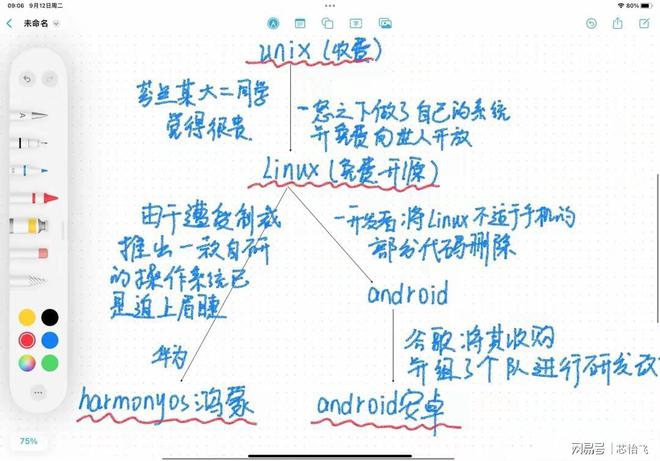 09:06 9月12日周二
80%
未命名
unix (收费)
芬兰某大二同学
觉得很贵
一怒之下做了自己的系统
并免费向世人开放
Linux (免费开源)
由于遭受制裁
推出一款自研
的操作系统已
是迫上眉睫
一开发者将Linux不适于手机的
部分代码删除
android
华为
谷歌将其收购
并组了个队进行研发改
harmonyos鸿蒙
android安卓
75%
网易号 | 芯怡飞